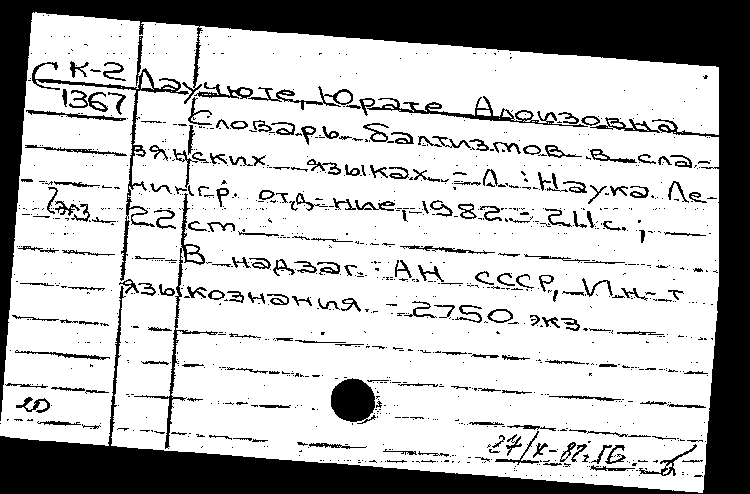 СК-2
1367
Лаучюте, Юрате Алоизовна
Словарь балтизмов в сла-
вянских языках. - Л.: Наука. Ле-
нингр. отд-ние, 1982. - 211 с.;
2 экз
22 см.
В надзаг.: АН СССР, Ин-т
языкознания. - 2750 экз.
20
27/X-82.